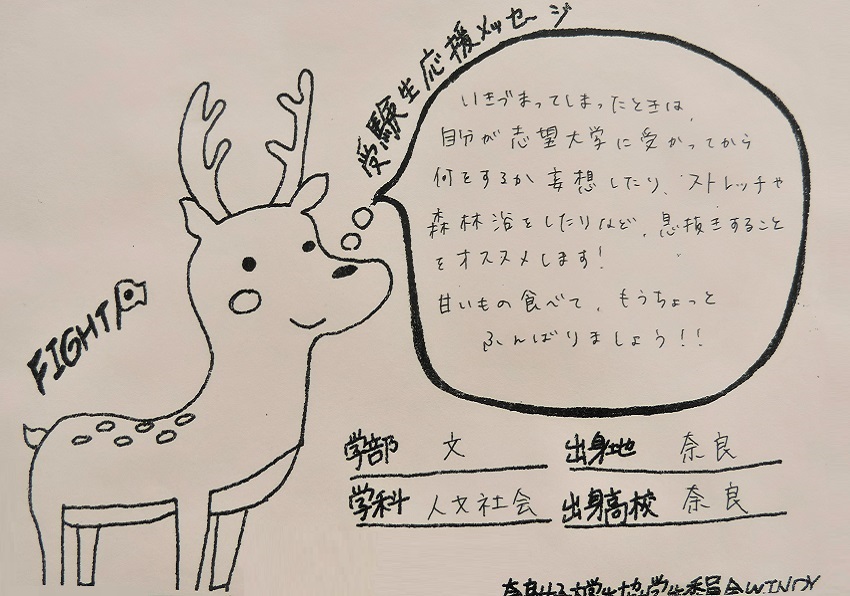 受験生応援メッセージ
いきづまってしまったときは、
自分が志望大学に受かってから
何をするか妄想したり、ストレッチや
森林浴をしたりなど、息抜きすること
をオススメします!
甘いもの食べて、もうちょっと
ふんばりましょう!!
FIGHT
学部 文
出身地 奈良
学科 人文社会
出身高校 奈良
奈良女子大学生協学生委員会WINDY